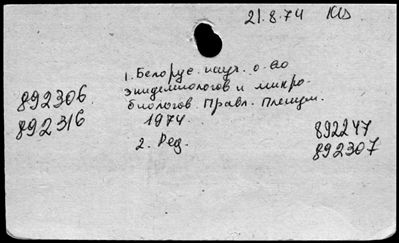 21.8.74 КИЗ
1. Белорус. науч. о-во
эпидемиологов и микро-
биологов. Правл. Пленум.
1974.
2. Ред.
892306
892316
892247
892307